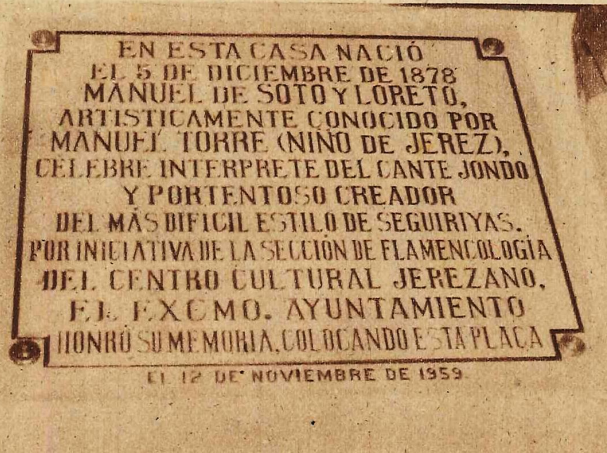 EN ESTA CASA NACIÓ
EL 5 DE DICIEMBRE DE 1878
MANUEL DE SOTO Y LORETO,
ARTISTICAMENTE CONOCIDO POR
MANUEL TORRE (NIÑO DE JEREZ),
CELEBRE INTERPRETE DEL CANTE JONDO
Y PORTENTOSO CREADOR
DEL MÁS DIFICIL ESTILO DE SEGUIRIYAS.
POR INICIATIVA DE LA SECCIÓN DE FLAMENCOLOGÍA
DEL CENTRO CULTURAL JEREZANO,
EL EXCMO. AYUNTAMIENTO
HONRÓ SU MEMORIA, COLOCANDO ESTA PLACA
EL 12 DE NOVIEMBRE DE 1959.